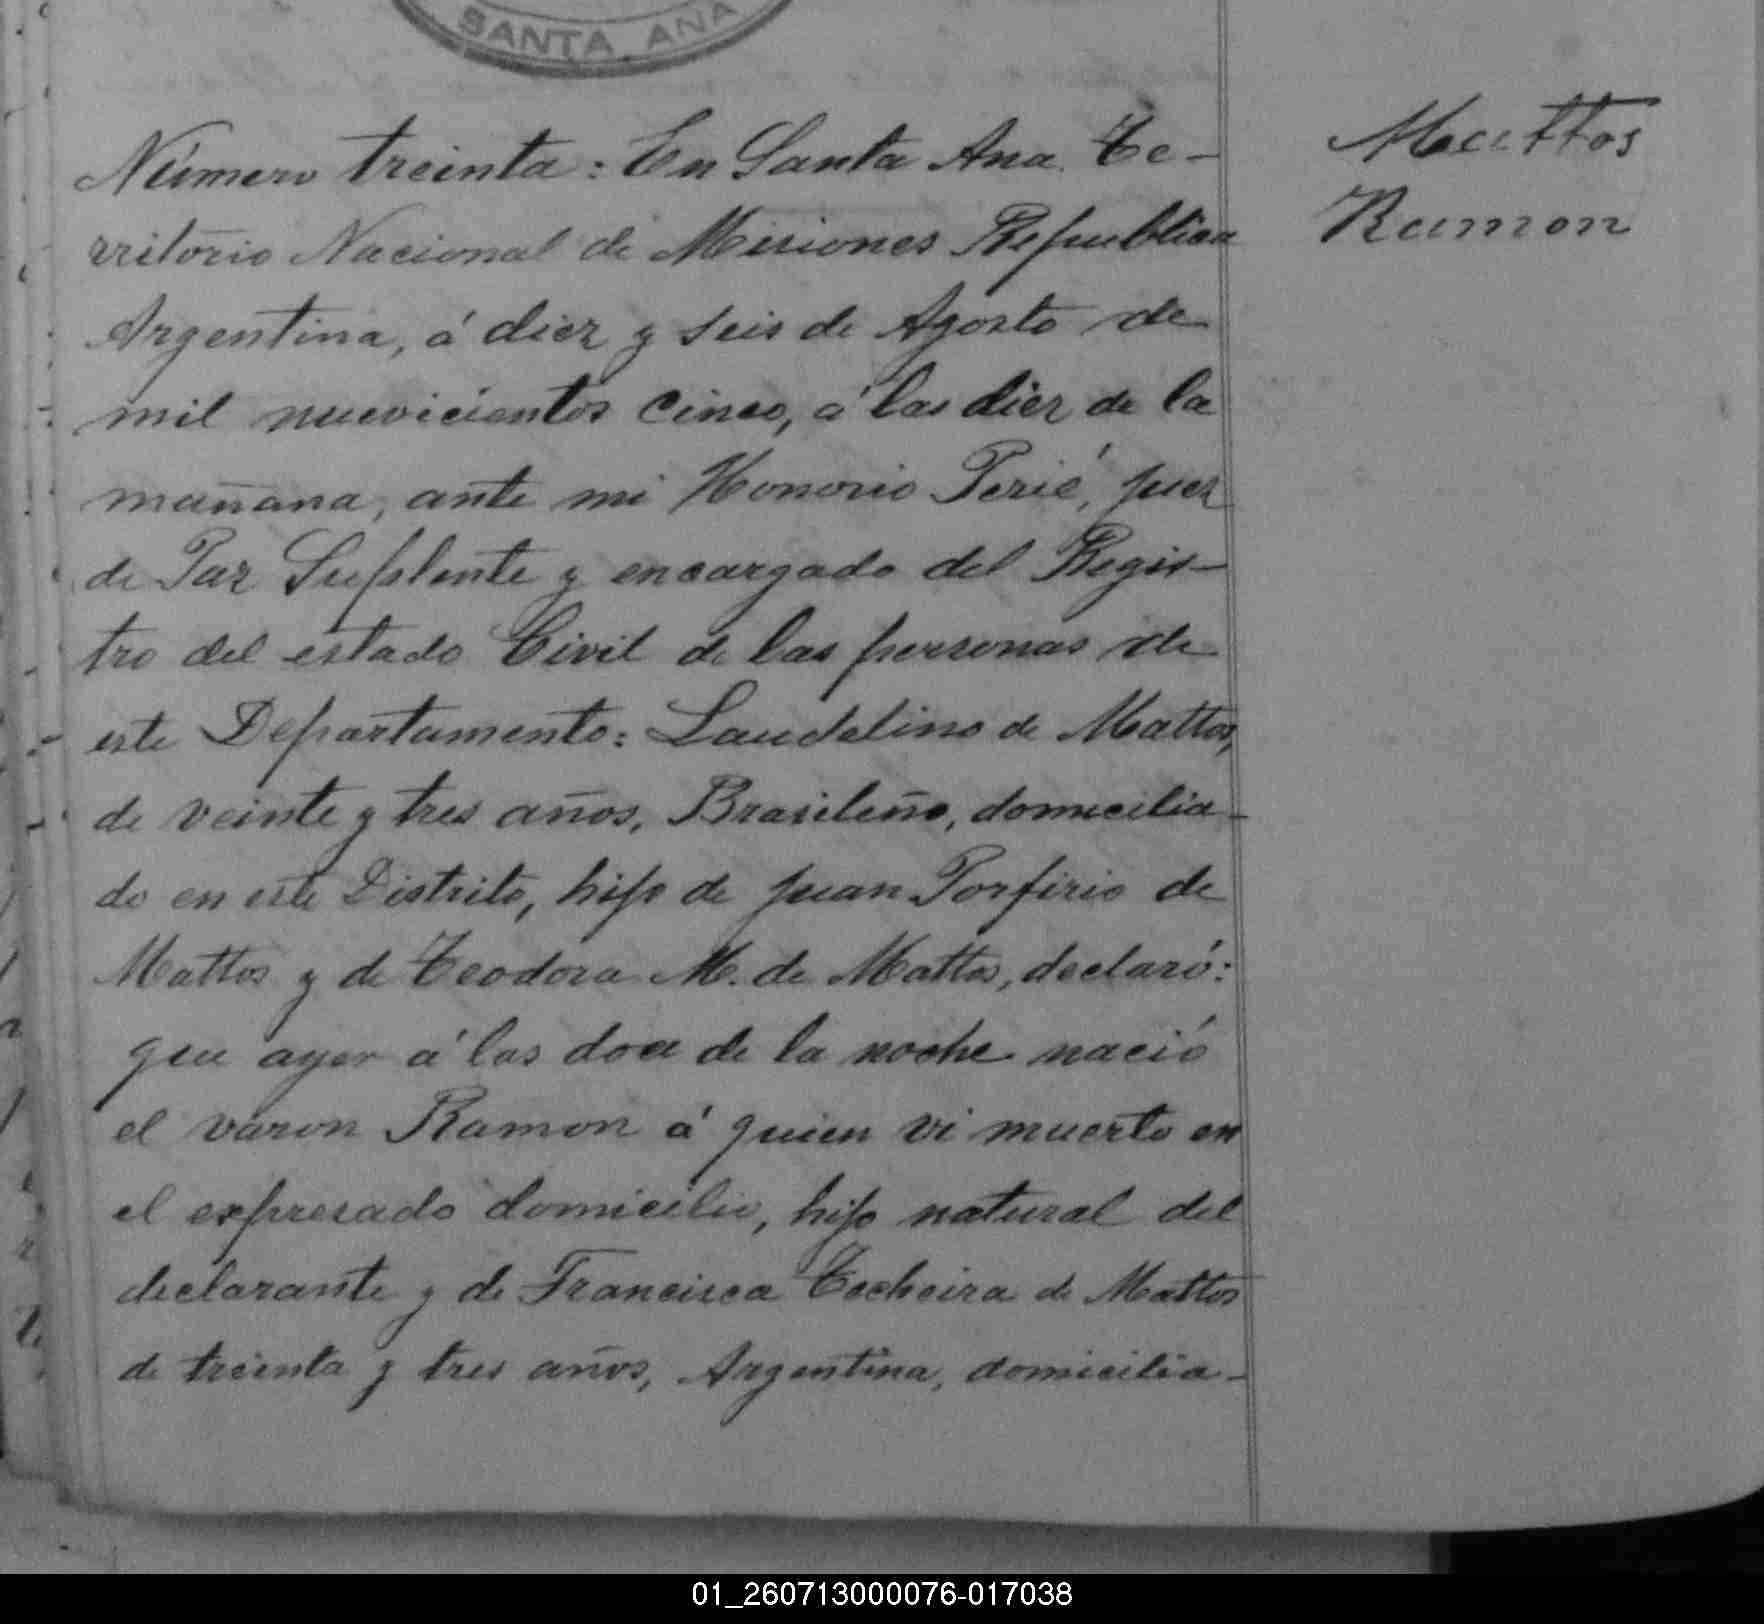 SANTA ANA
Número treinta: En Santa Ana Te-
rritorio Nacional de Misiones Republica
Argentina, á diez y seis de Agosto de
mil nuevicientos cinco, á las diez de la
mañana, ante mi Honorio Perié, juez
de Paz Suplente y encargado del Regis-
tro del estado Civil de las personas de
este Departamento: Laudelino de Mattos,
de veinte y tres años, Brasileño, domicilia-
do en este Distrito, hijo de Juan Porfirio de
Mattos y de Teodora M. de Mattos, declaró:
que ayer á las doce de la noche nació
el varon Ramon á quien vi muerto en
el expresado domicilio, hijo natural del
declarante y de Francisca Techeira de Mattos
de treinta y tres años, Argentina, domicilia-
Mattos
Ramon
01_260713000076-017038